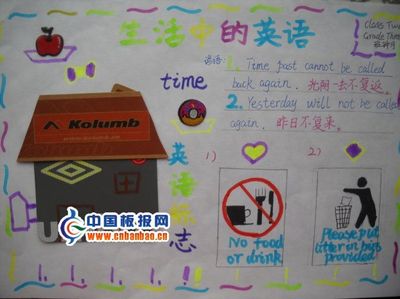 生活中的英语
Class Two
Grade Three
time
谚语:
1. Time past cannot be called
back again. 光阴一去不复返。
2. Yesterday will not be called
again. 昨日不复来。
Kolumb
英语标志
1)
No food
or drink
2)
Please put
litter in bins
provided
中国板报网
www.cnbanbao.cn